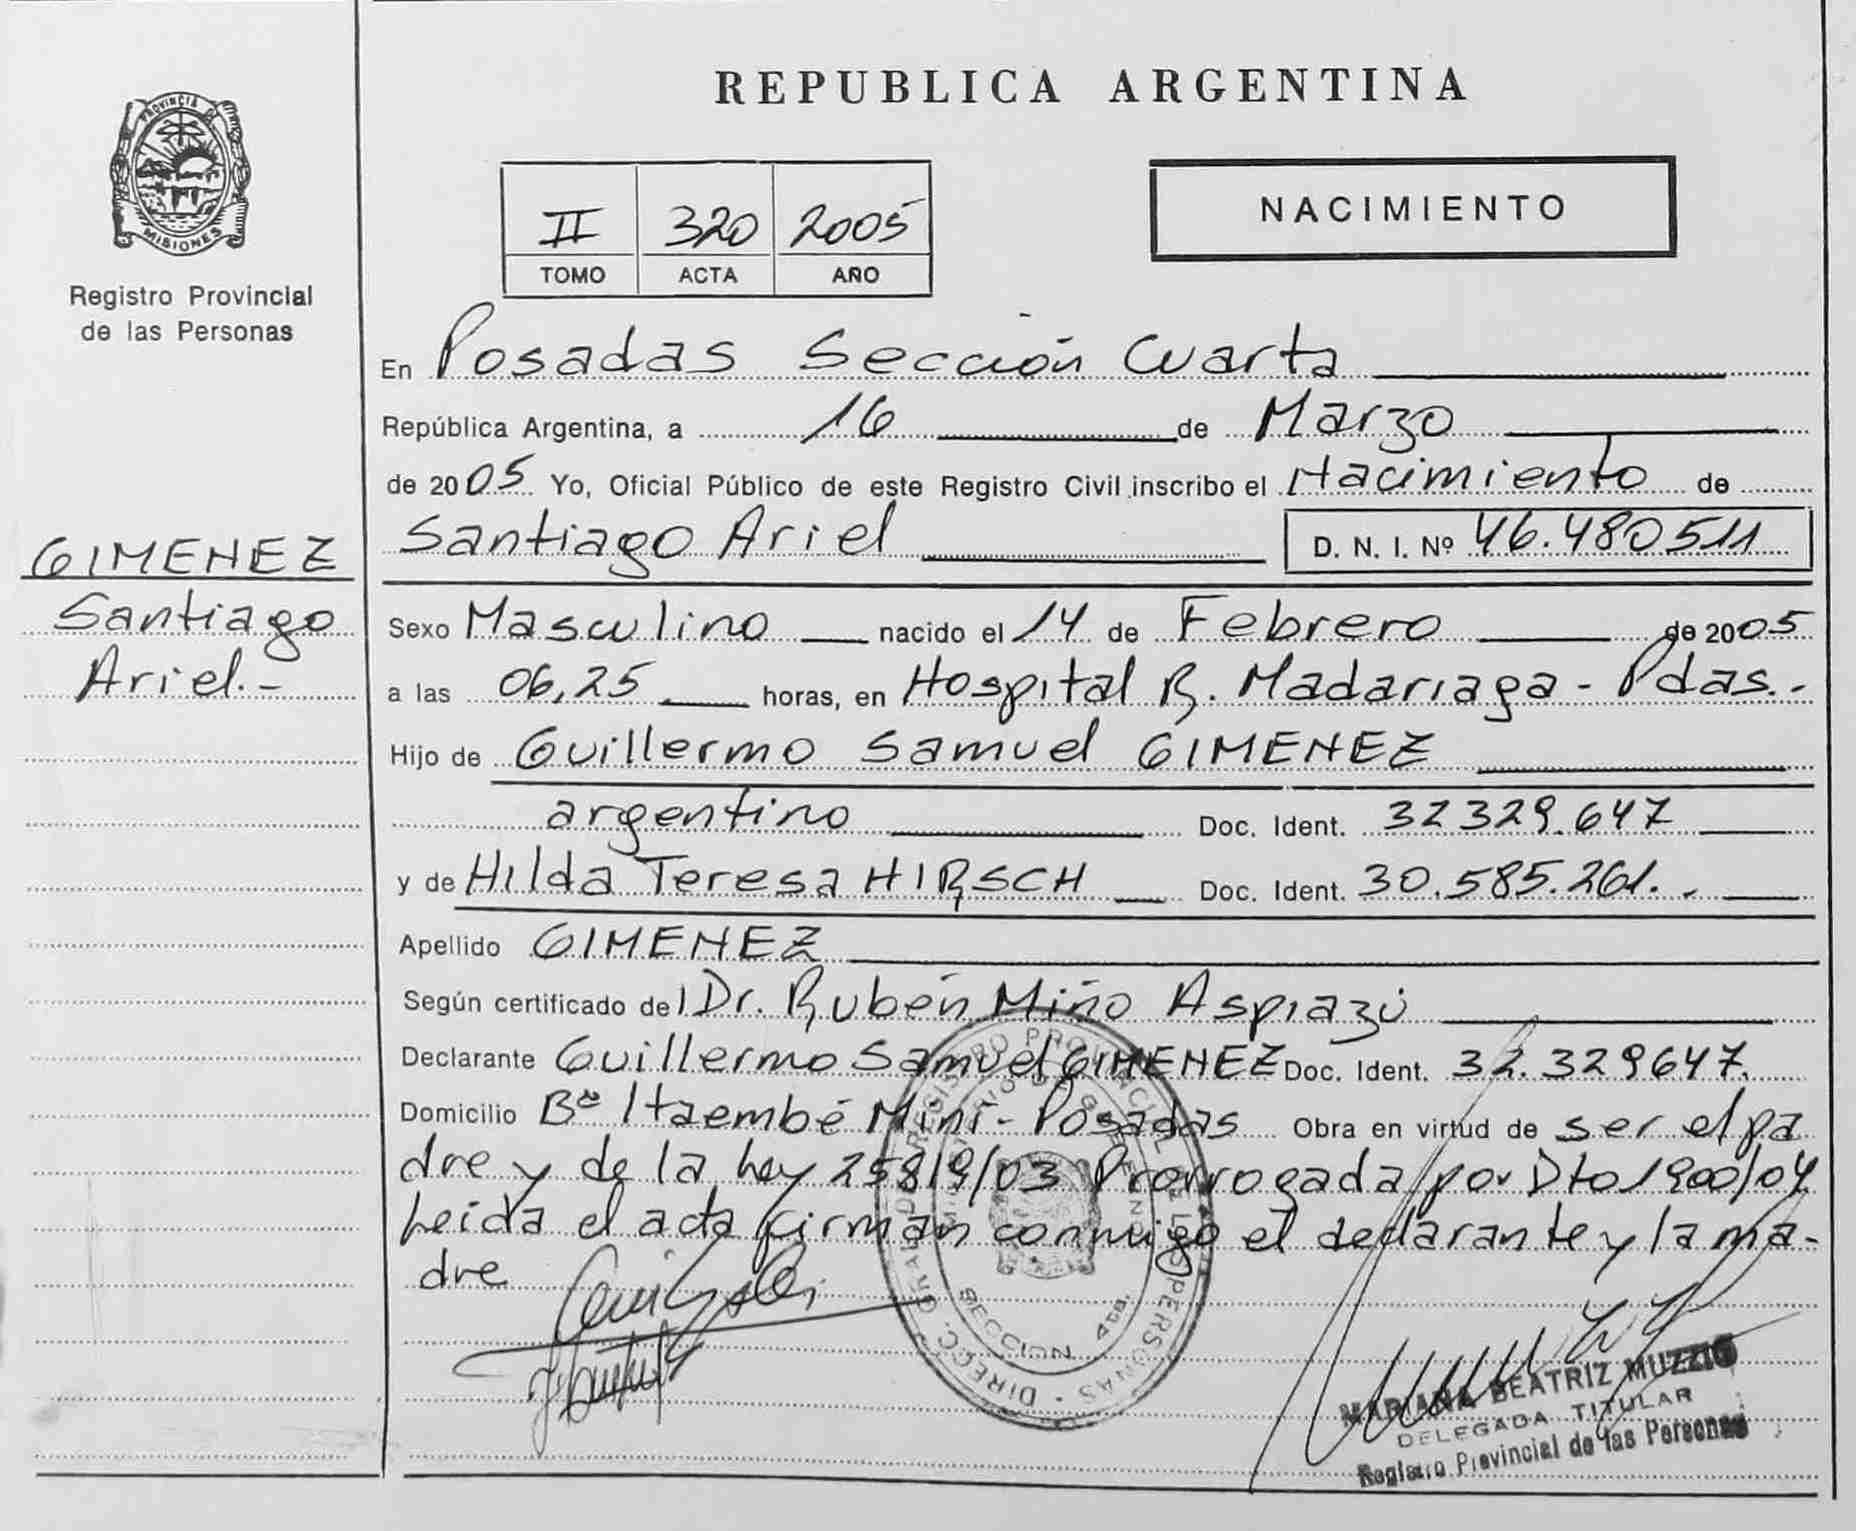 REPUBLICA ARGENTINA
PROVINCIA DE MISIONES
Registro Provincial
de las Personas
II 320 2005
TOMO ACTA AÑO
NACIMIENTO
En Posadas Sección Cuarta
República Argentina, a 16 de Marzo
de 2005 Yo, Oficial Público de este Registro Civil inscribo el Nacimiento de
Santiago Ariel D. N. I. Nº 46.480511
GIMENEZ
Santiago
Ariel.-
Sexo Masculino nacido el 14 de Febrero de 2005
a las 06,25 horas, en Hospital R. Madariaga - Pdas.-
Hijo de Guillermo Samuel GIMENEZ
argentino Doc. Ident. 32329.647
y de Hilda Teresa HIRSCH Doc. Ident. 30.585.261.-
Apellido GIMENEZ
Según certificado del Dr. Rubén Miño Aspiazú
Declarante Guillermo Samuel GIMENEZ Doc. Ident. 32.329647.
Domicilio Bº Itaembé Miní - Posadas Obra en virtud de ser el pa
dre y de la ley 25819/03 Prorrogada por Dto 1900/04
Leida el acta firman conmigo el declarante y la ma-
dre
DIRECC. GRAL. DE REGISTRO PROVINCIAL DE LAS PERSONAS
MINISTERIO DE GOBIERNO
SECCION 4ta.
MARIANA BEATRIZ MUZZIO
DELEGADA TITULAR
Registro Provincial de las Personas